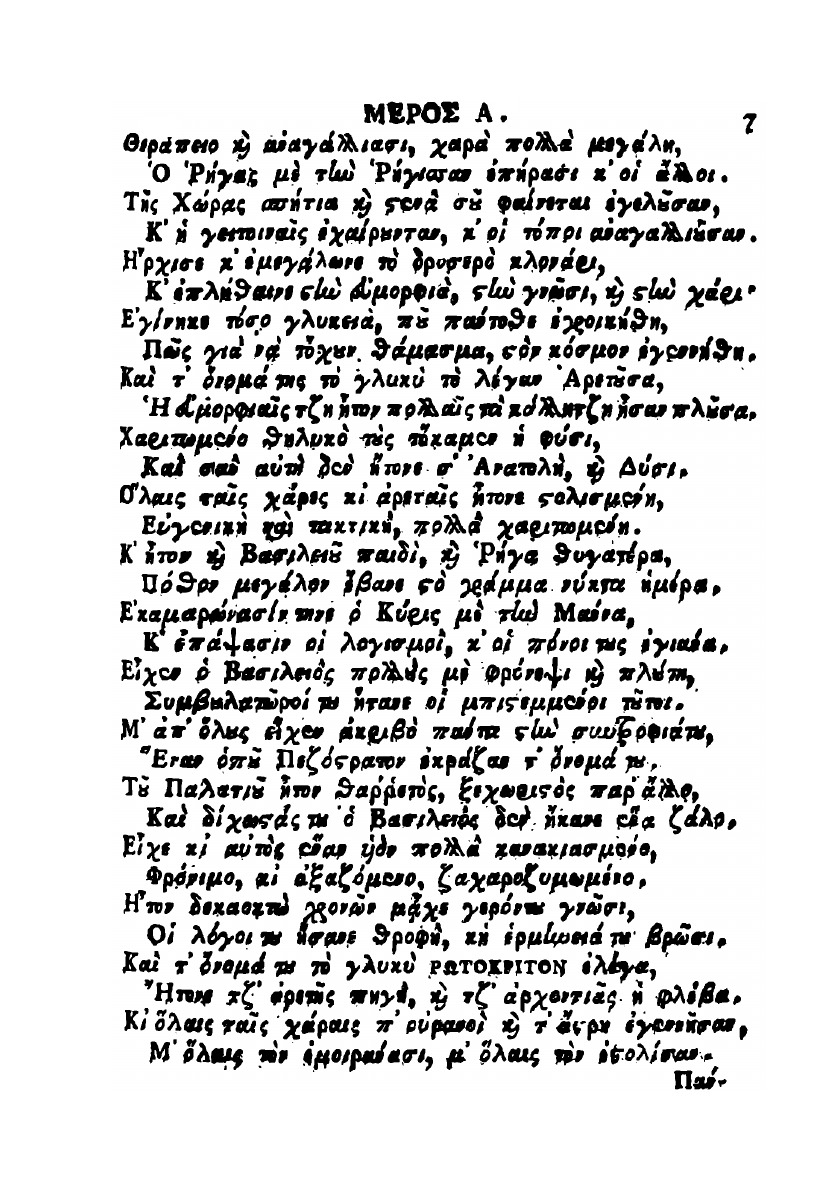 ΜΕΡΟΣ Α. 7
Θεράπειο καὶ ἀναγάλλιασι, χαρὰ πολλὰ μεγάλη,
Ὁ Ῥήγας μὲ τὴν Ῥήγισσαν ἐπήρασι κ' οἱ ἄλλοι.
Τῆς Χώρας σπήτια καὶ στενὰ σοῦ φαίνεται ἐγελοῦσαν,
Κ' ἡ γειτονιαῖς ἐχαίρουνταν, κ' οἱ τόποι ἀναγαλλιοῦσαν.
Ἤρχισε κ' ἐμεγάλωνε τὸ δροσερὸ κλονάρι,
Κ' ἐπλήθαινε στὴν ὀμορφιὰ, στὴν γνῶσι, καὶ στὴν χάρι.
Ἐγίνηκε τόσο γλυκειὰ, ποῦ πάντοθε ἐγροικήθη,
Πῶς γιὰ νὰ τὄχουν θάμασμα, στὸν κόσμον ἐγεννήθη.
Καὶ τ' ὄνομά της τὸ γλυκὺ τὸ λέγαν Ἀρετοῦσα,
Ἡ ὀμορφιαῖς τζη ἦτον πολλαῖς τὰ κάλλη τζη ἦσαν πλοῦσα.
Χαριτωμένο θηλυκὸ τοὺς τὄκαμεν ἡ φύσι,
Καὶ σὰν αὐτὴ δὲν ἦτονε σ' Ἀνατολὴ, καὶ Δύσι.
Ὅλαις ταῖς χάρες κι ἀρεταῖς ἦτονε στολισμένη,
Εὐγενικὴ καὶ τακτικὴ, πολλὰ χαριτωμένη.
Κ' ἦτον καὶ Βασιλειοῦ παιδὶ, καὶ Ῥήγα θυγατέρα,
Πόθον μεγάλον ἔβανε στὸ γράμμα νύκτα ἡμέρα.
Ἐκαμαρώνασίν τηνε ὁ Κύρις μὲ τὴν Μάνα,
Κ' ἐπάψασιν οἱ λογισμοὶ, κ' οἱ πόνοι τως ἐγιάνα.
Εἶχεν ὁ Βασιλειὸς πολλοὺς μὲ φρόνεψι καὶ πλούτη,
Συμβουλατῶροί του ἦτανε οἱ μπιστεμμένοι τοῦτοι.
Μ' ἀπ' ὅλους εἶχεν ἀκριβὸ πάντα στὴν συντροφιάτου,
Ἕναν ὁποῦ Πεζόστρατον ἐκράζαν τ' ὄνομά του.
Τοῦ Παλατιοῦ ἦτον θαῤῥετὸς, ξεχωριστὸς παρ' ἄλλο,
Καὶ δίχωστάς του ὁ Βασιλειὸς δὲν ἤκανε ἕνα ζάλο.
Εἶχε κι αὐτὸς ἕναν ὑὸν πολλὰ κανακιασμένο,
Φρόνιμο, κι ἀξαζόμενο, ζαχαροζυμωμένο.
Ἦτον δεκαοκτὼ χρονῶν μἄχε γερόντου γνῶσι,
Οἱ λόγοι του ἤσανε θροφὴ, κὴ ἑρμήνειά του βρῶσι.
Καὶ τ' ὄνομά του τὸ γλυκὺ ΡΩΤΟΚΡΙΤΟΝ ἐλέγα,
Ἤτονε τζ' ἀρετῆς πηγὴ, καὶ τζ' ἀρχοντιᾶς ἡ φλέβα.
Κι ὅλαις ταῖς χάραις π' οὐρανοὶ καὶ τ' ἄστρη ἐγεννῆσαν,
Μ' ὅλαις τὸν ἐμοιράνασι, μ' ὅλαις τὸν ἐστολίσαν.
Παν-